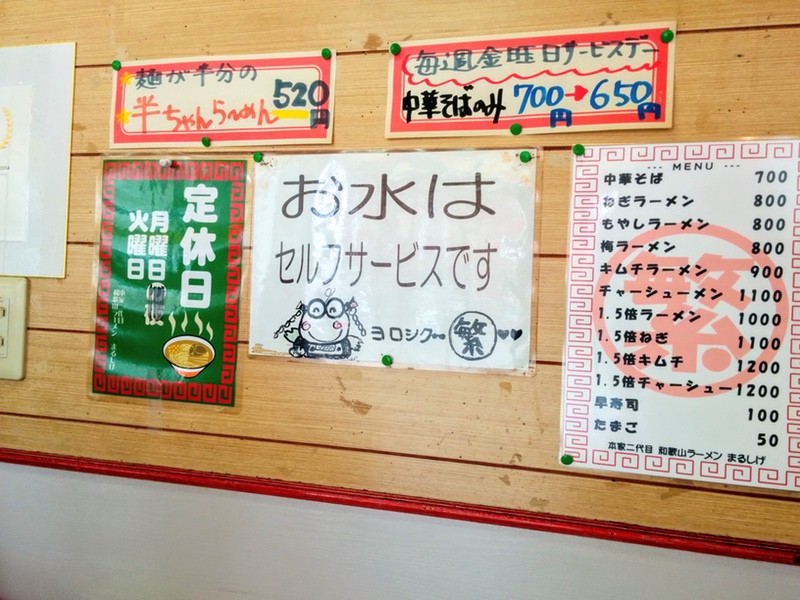 麺が半分の
半ちゃんらーめん 520円
毎週金曜日サービスデー
中華そばのみ 700円→650円
定休日
月曜日
火曜日
お水は
セルフサービスです
ヨロシク 繁
--- MENU ---
中華そば 700
ねぎラーメン 800
もやしラーメン 800
梅ラーメン 800
キムチラーメン 900
チャーシューメン 1100
1.5倍ラーメン 1000
1.5倍ねぎ 1100
1.5倍キムチ 1200
1.5倍チャーシュー 1200
早寿司 100
たまご 50
本家二代目 和歌山ラーメン まるしげ
繁